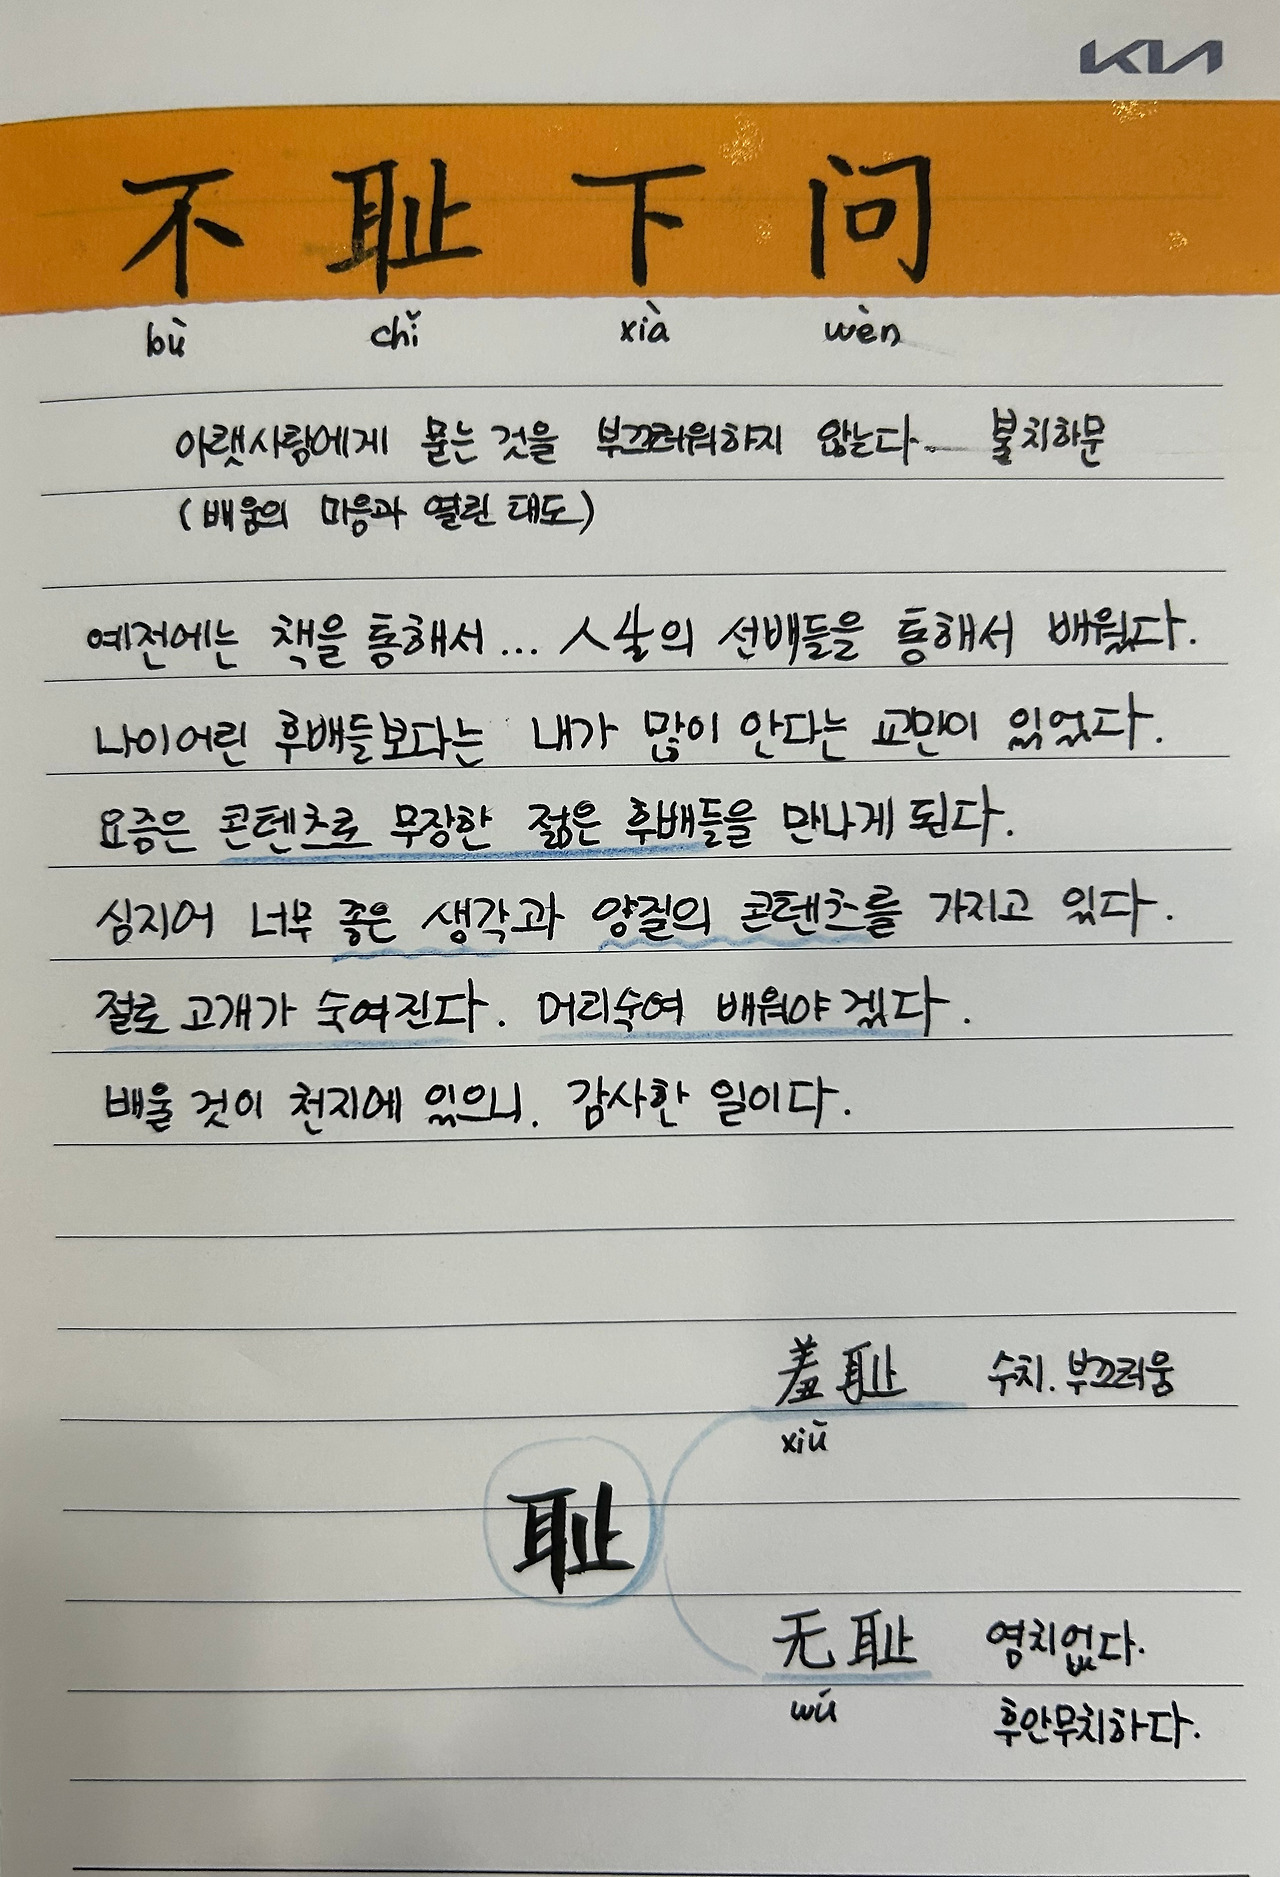 KIA
不 耻 下 问
bù chǐ xià wèn
아랫사람에게 묻는 것을 부끄러워하지 않는다. 불치하문
(배움의 마음과 열린 태도)
예전에는 책을 통해서... 人生의 선배들을 통해서 배웠다.
나이어린 후배들보다는 내가 많이 안다는 교만이 있었다.
요즘은 콘텐츠로 무장한 젊은 후배들을 만나게 된다.
심지어 너무 좋은 생각과 양질의 콘텐츠를 가지고 있다.
절로 고개가 숙여진다. 머리숙여 배워야 겠다.
배울 것이 천지에 있으니, 감사한 일이다.
羞耻 수치. 부끄러움
xiū
耻
无耻 염치없다.
wú 후안무치하다.